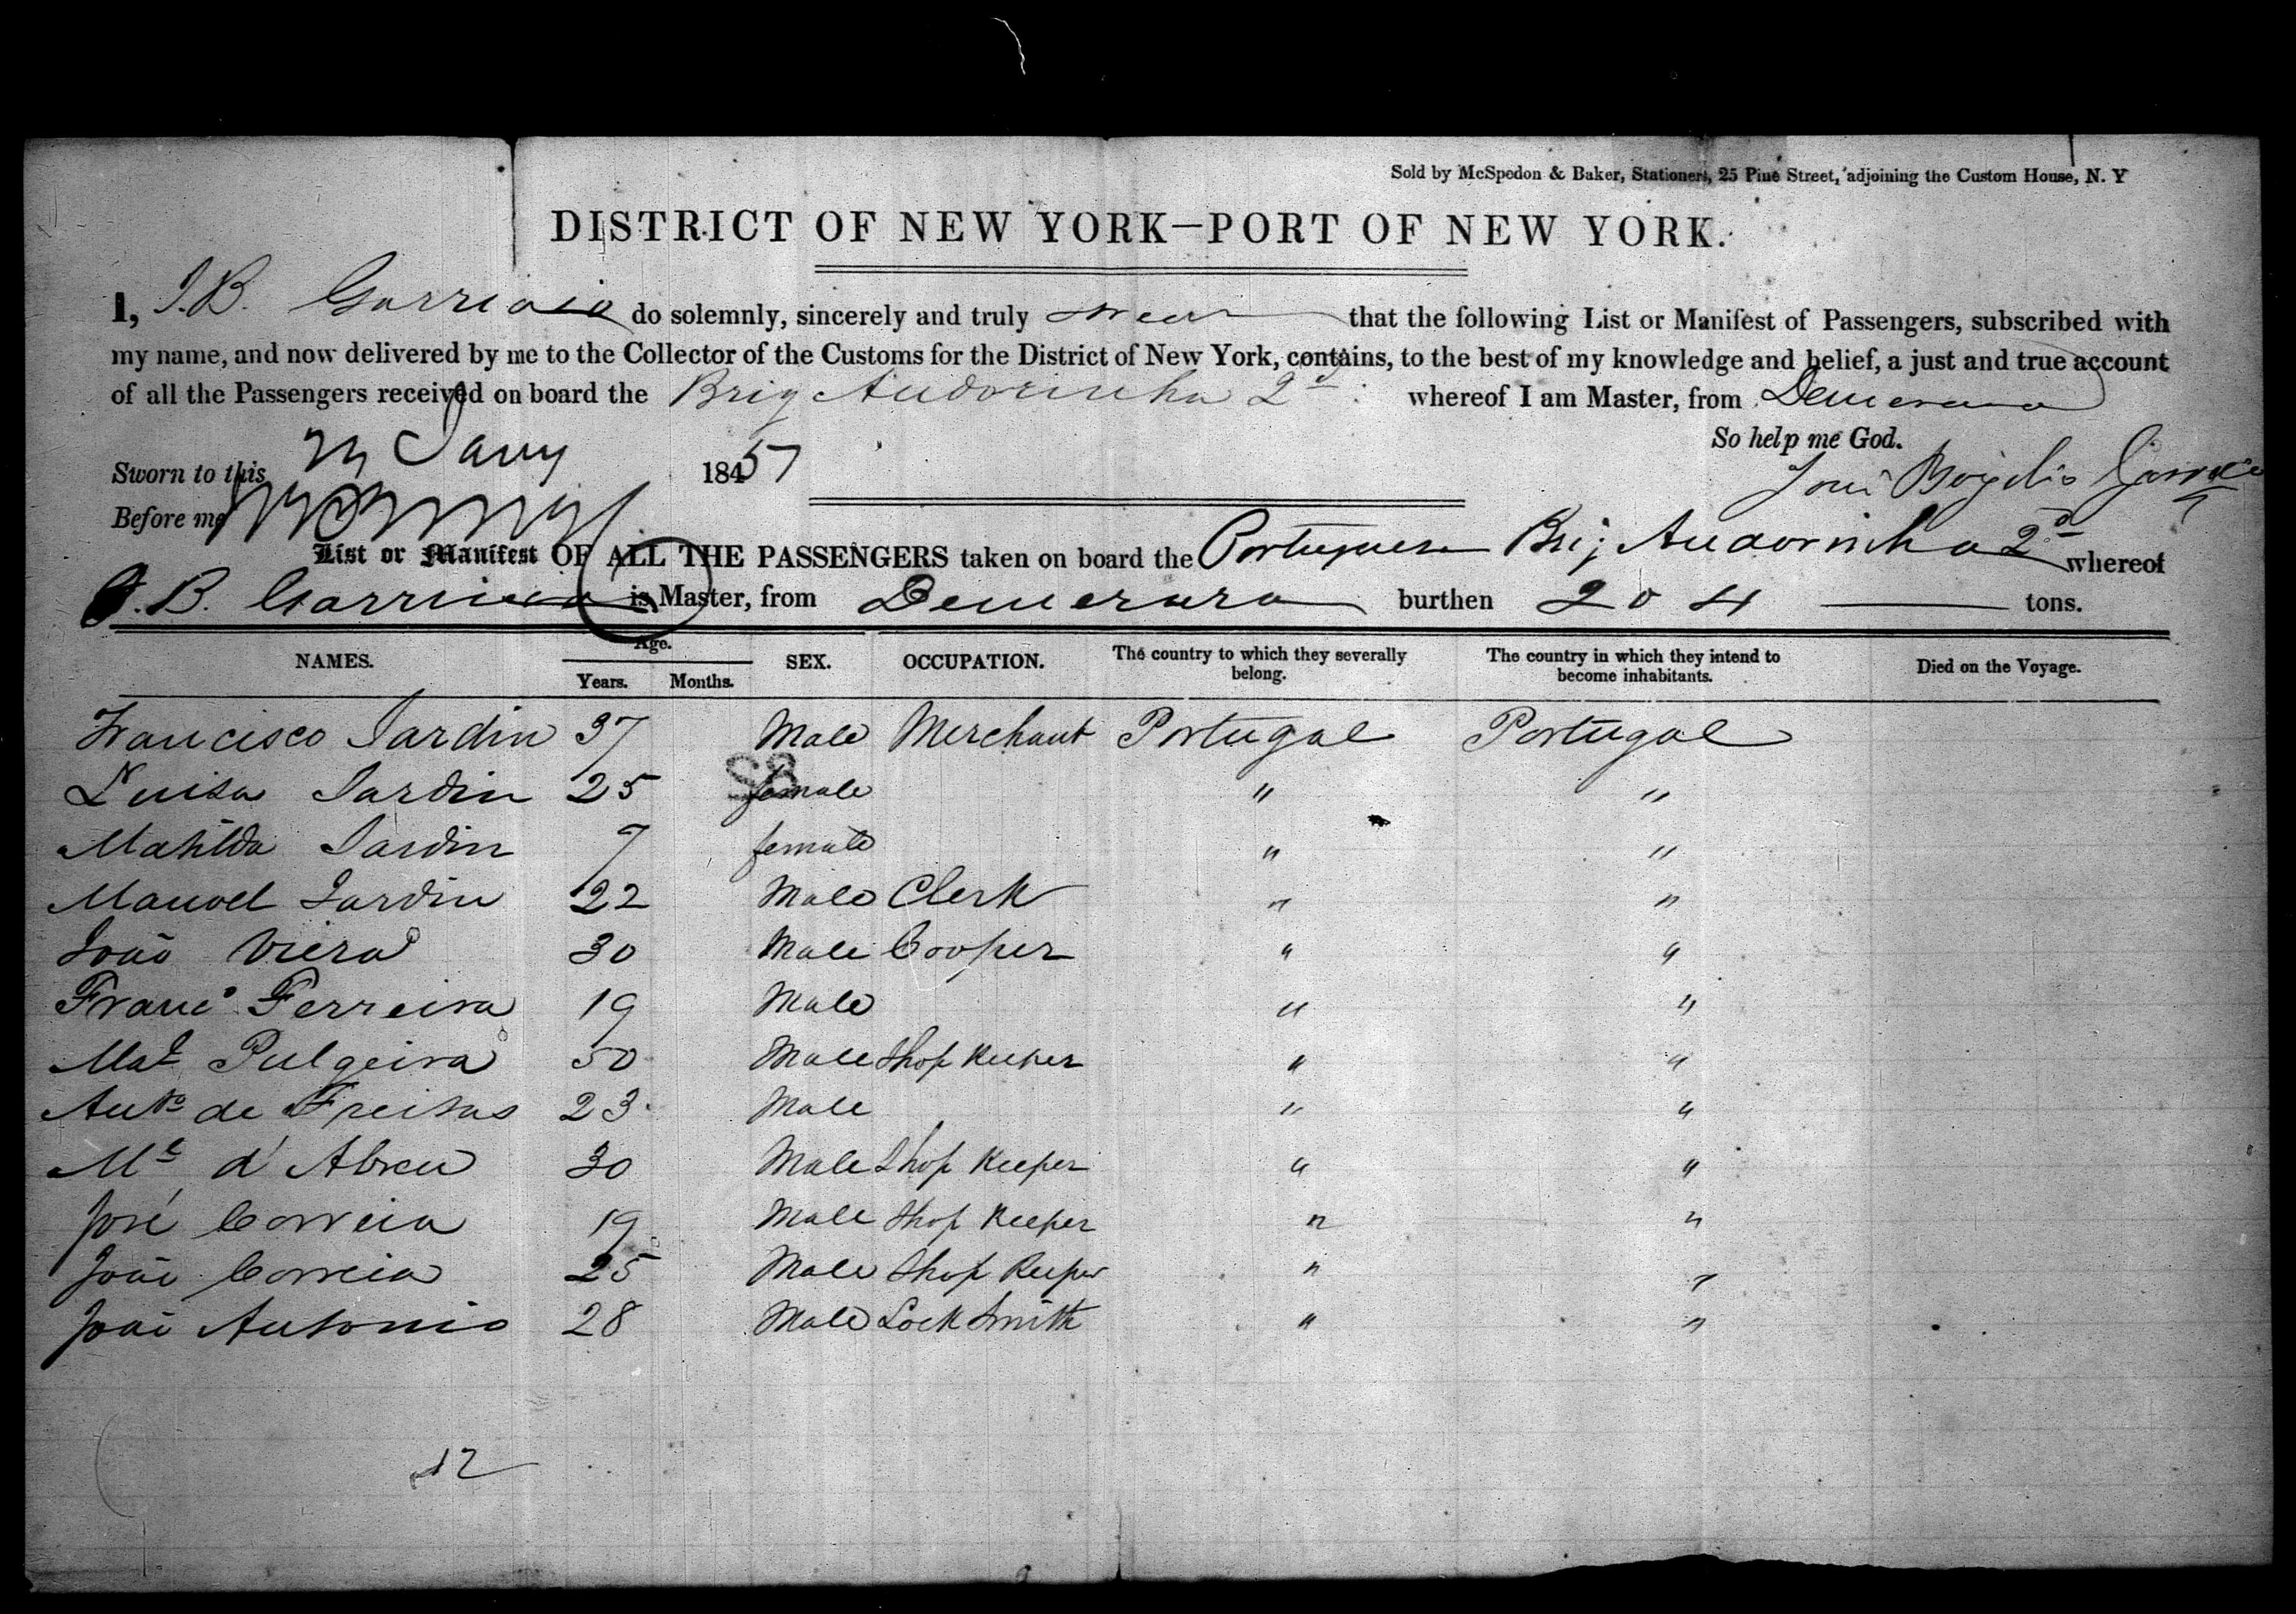 Sold by McSpedon & Baker, Stationers, 25 Pine Street, adjoining the Custom House, N. Y
DISTRICT OF NEW YORK—PORT OF NEW YORK.
I, J.B. do solemnly, sincerely and truly swear that the following List or Manifest of Passengers, subscribed with
my name, and now delivered by me to the Collector of the Customs for the District of New York, contains, to the best of my knowledge and belief, a just and true account
of all the Passengers received on board the Brig Andorinha 2d whereof I am Master, from Demerara
So help me God.
Sworn to this 184
Before me
List or Manifest OF ALL THE PASSENGERS taken on board the Portuguese Brig Andorinha 2d whereof
J. B. is Master, from Demerara burthen 204 tons.
NAMES. Age. Years. Months. SEX. OCCUPATION. The country to which they severally belong. The country in which they intend to become inhabitants. Died on the Voyage.
Francisco Jardin 37 Male Merchant Portugal Portugal
S8
Luisa Jardin 25 female " "
Matilda Jardin 7 female " "
Manoel Jardin 22 Male Clerk " "
João Viera 30 Male Cooper " "
Franco Ferreira 19 Male " "
Mal Pulgeira 50 Male Shop Keeper " "
Anto de Freitas 23 Male " "
Ml d'Abreu 30 Male Shop Keeper " "
José Correia 19 Male Shop Keeper " "
João Correia 25 Male Shop Keeper " "
João Antonio 28 Male Lock Smith " "
12